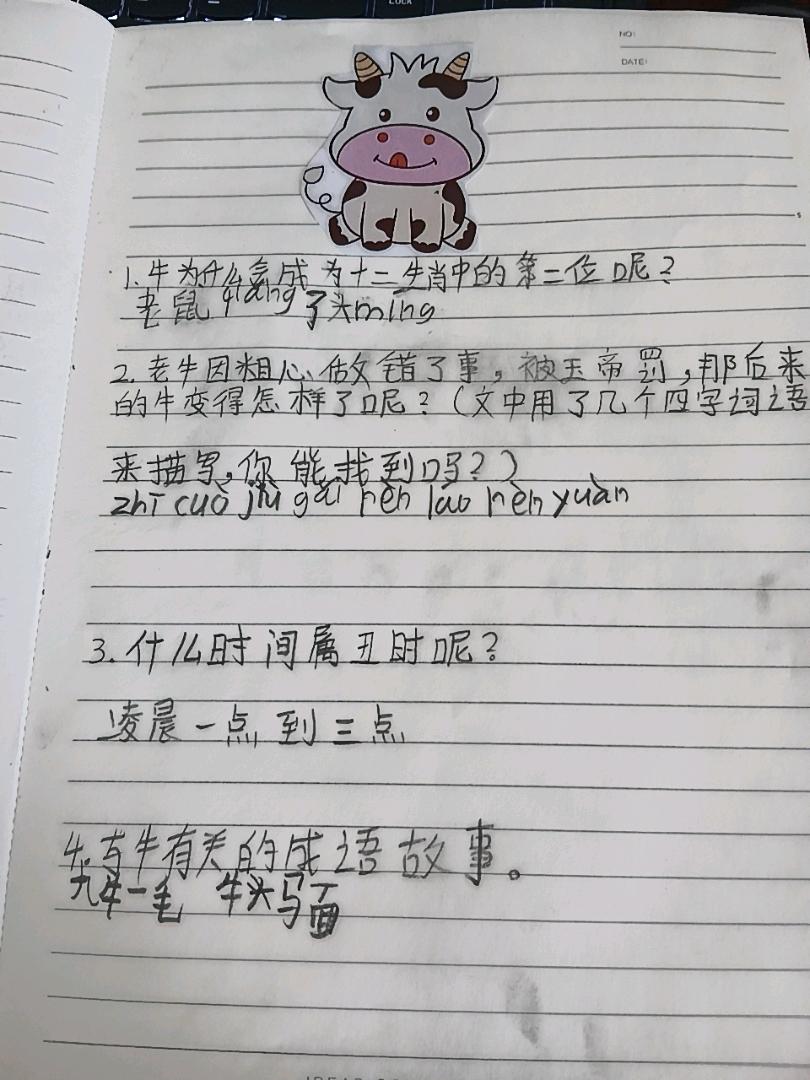 NO:
DATE:
1.牛为什么会成为十二生肖中的第二位呢？
老鼠qiǎng了头míng
2.老牛因粗心做错了事，被玉帝罚，那后来
的牛变得怎样了呢？（文中用了几个四字词语
来描写，你能找到吗？）
zhī cuò jiù gǎi rèn láo rèn yuàn
3.什么时间属丑时呢？
凌晨一点到三点
4.与牛有关的成语故事。
九牛一毛 牛头马面